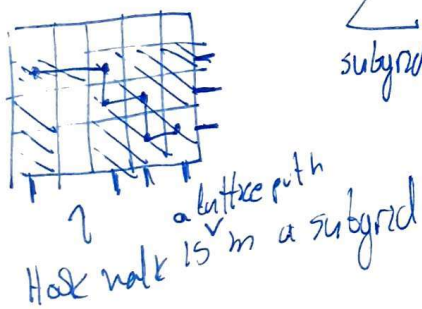 subgrid
a lattice path
Hook walk is in a subgrid